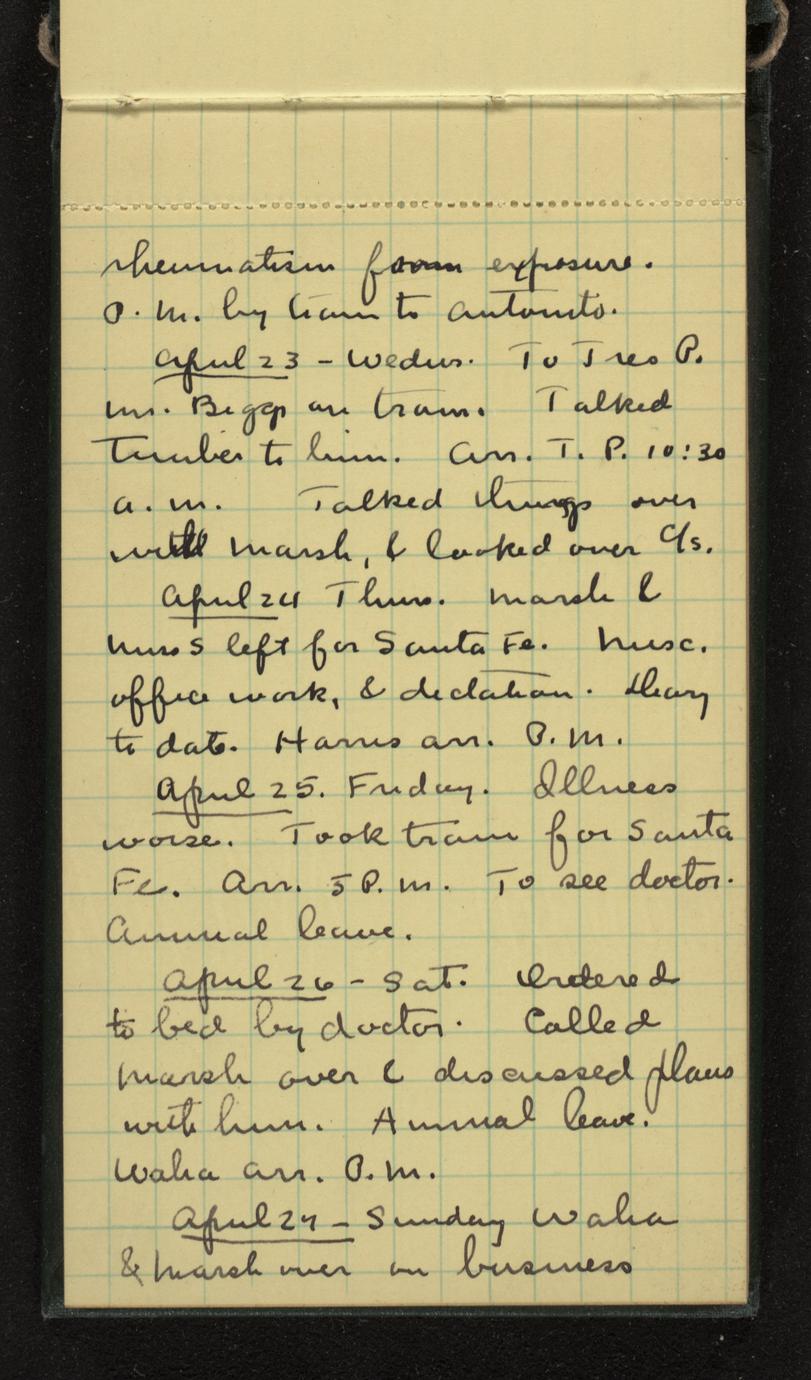 rheumatism from exposure.
P.M. by train to Antonito.
April 23 - Wednes. To Tres P.
Mr. Biggs on train. Talked
timber to him. Arr. T. P. 10:30
a.m. Talked things over
with Marsh, & looked over C/s.
April 24 Thurs. Marsh &
left for Santa Fe. Misc.
office work, & dictation. Diary
to date. Harris arr. P.M.
April 25. Friday. Illness
worse. Took train for Santa
Fe. Arr. 5 P.m. To see doctor.
Annual leave.
April 26 - Sat. Ordered
to bed by doctor. Called
Marsh over & discussed plans
with him. Annual leave.
Waha arr. P.M.
April 27 - Sunday Waha
& Marsh over on business